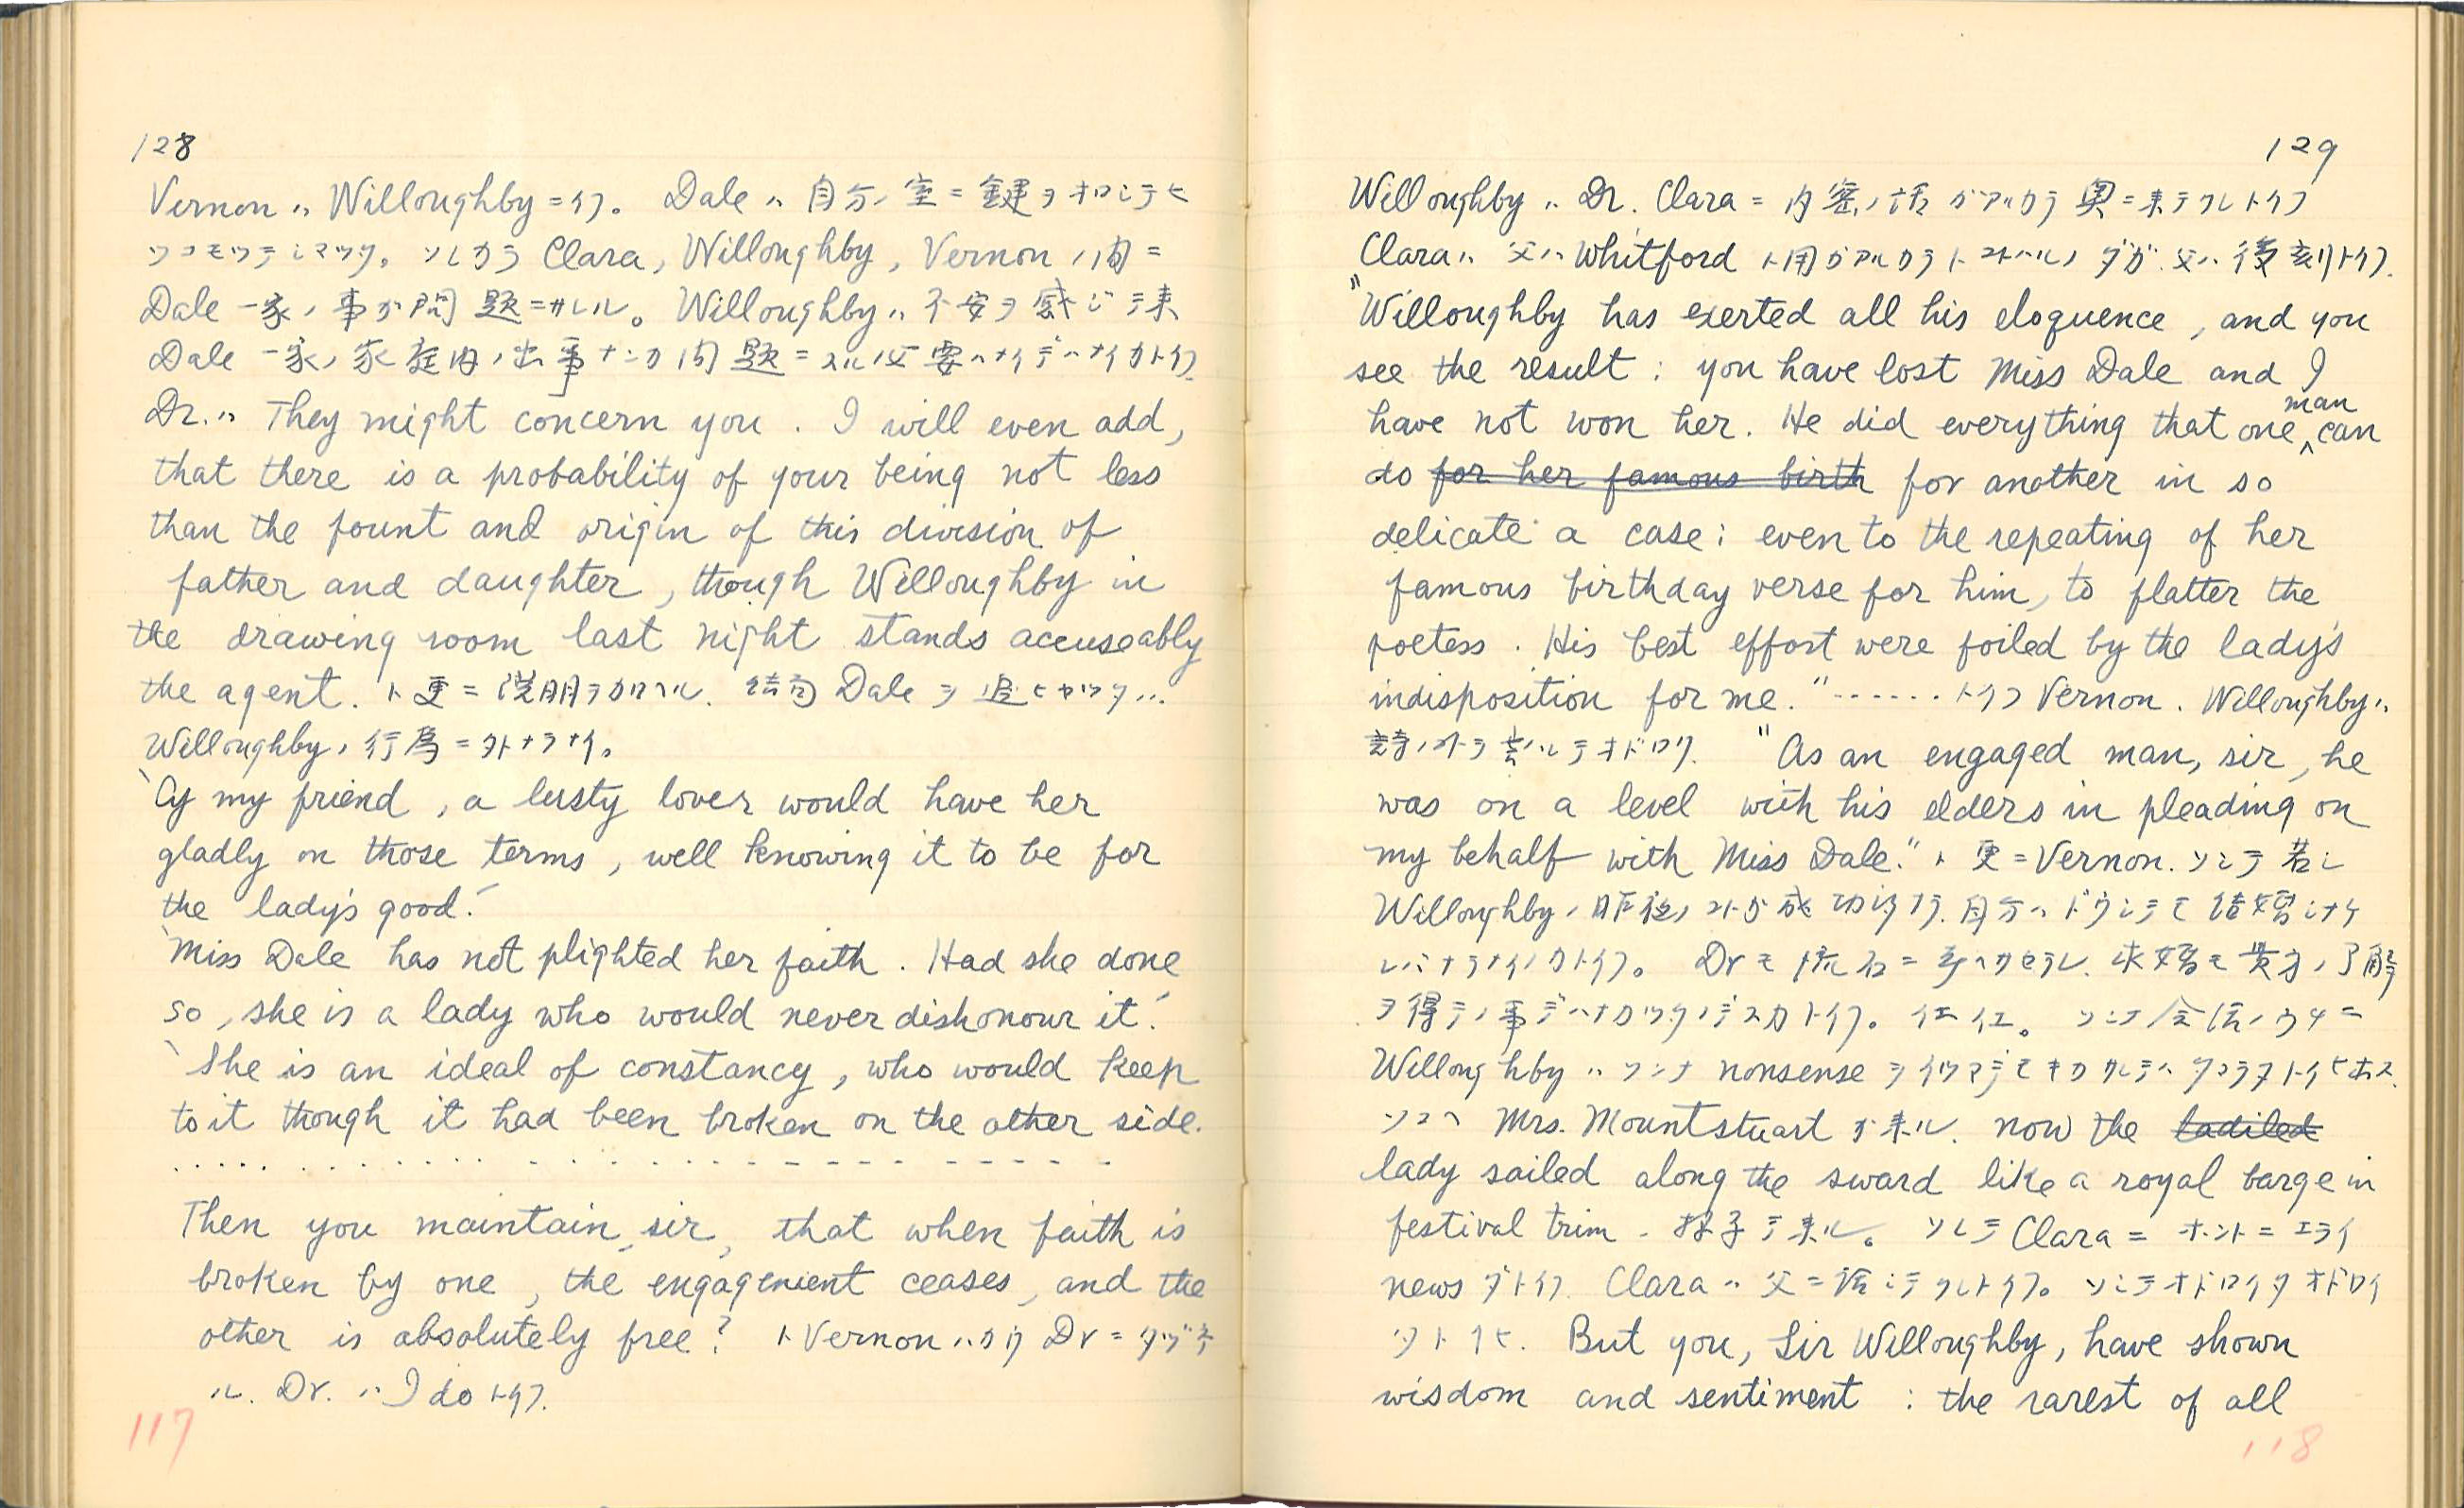 128
Vernon ハ Willoughby ニイフ。 Dale ハ 自分ノ室ニ鍵ヲオロシテヒ
ツコモツテシマツタ。ソレカラ Clara, Willoughby, Vernon ノ間ニ
Dale 一家ノ事ガ問題ニサレル。Willoughby ハ 不安ヲ感ジテ来
Dale 一家ノ家庭内ノ出事ナンカ問題ニスル必要ハナイデハナイカトイフ
Dr. ハ They might concern you. I will even add,
that there is a probability of your being not less
than the fount and origin of this division of
father and daughter, though Willoughby in
the drawing room last night stands accuseably
the agent. ト更ニ説明ヲカロヘル. 結局 Dale ヲ追ヒヤツタ...
Willoughby ノ行為ニ外ナラナイ。
`Cy my friend, a lusty lover would have her
gladly on those terms, well knowing it to be for
the lady's good.´
`Miss Dale has not plighted her faith. Had she done
so, she is a lady who would never dishonour it.´
`She is an ideal of constancy, who would keep
to it though it had been broken on the other side.
. . . . . . . . . . . . . . - - - - - - - -
Then you maintain, sir, that when faith is
broken by one, the engagement ceases, and the
other is absolutely free? ト Vernon ハ Dr ニタヅネ
ル. Dr. ハ I do トイフ.
117
129
Willoughby ハ Dr. Clara ニ内密ノ話ガアルカラ奥ニ来テクレトイフ
Clara ハ 父ハ Whitford ト用ガアルカラトコトハル、ダガ父ハ後刻トイフ.
"Willoughby has exerted all his eloquence, and you
see the result: you have lost Miss Dale and I
have not won her. He did everything that one man can
do for her famous birth for another in so
delicate a case: even to the repeating of her
famous birthday verse for him, to flatter the
poetess. His best effort were foiled by the lady's
indisposition for me." ...... トイフ Vernon. Willoughby ハ
詩ノコトヲ云ハレテオドロク. "As an engaged man, sir, he
was on a level with his elders in pleading on
my behalf with Miss Dale." ト更ニ Vernon. ソシテ若シ
Willoughby ノ昨夜ノコトガ成功シタナラ, 自分ハドウシテモ結婚シナケ
レバナラナイノカトイフ。 Dr モ流石ニ考ヘサセラレ. 求婚モ貴方ノ了解
ヲ得テノ事デハナカツタノデスカトイフ。云々。ソンナ会話ノウチニ
Willoughby ハソンナ nonsense ヲイツマデモキカサレテハタマラヌトイヒ出ス.
ソコヘ Mrs. Mountstuart ガ来ル. now the ladiled
lady sailed along the sward like a royal barge in
festival trim. 様子デ来ル。 ソレデ Clara ニホントニエライ
news ダトイフ. Clara ハ父ニ話シテクレトイフ。ソシテオドロイタオドロイ
タトイヒ. But you, Sir Willoughby, have shown
wisdom and sentiment: the rarest of all
118